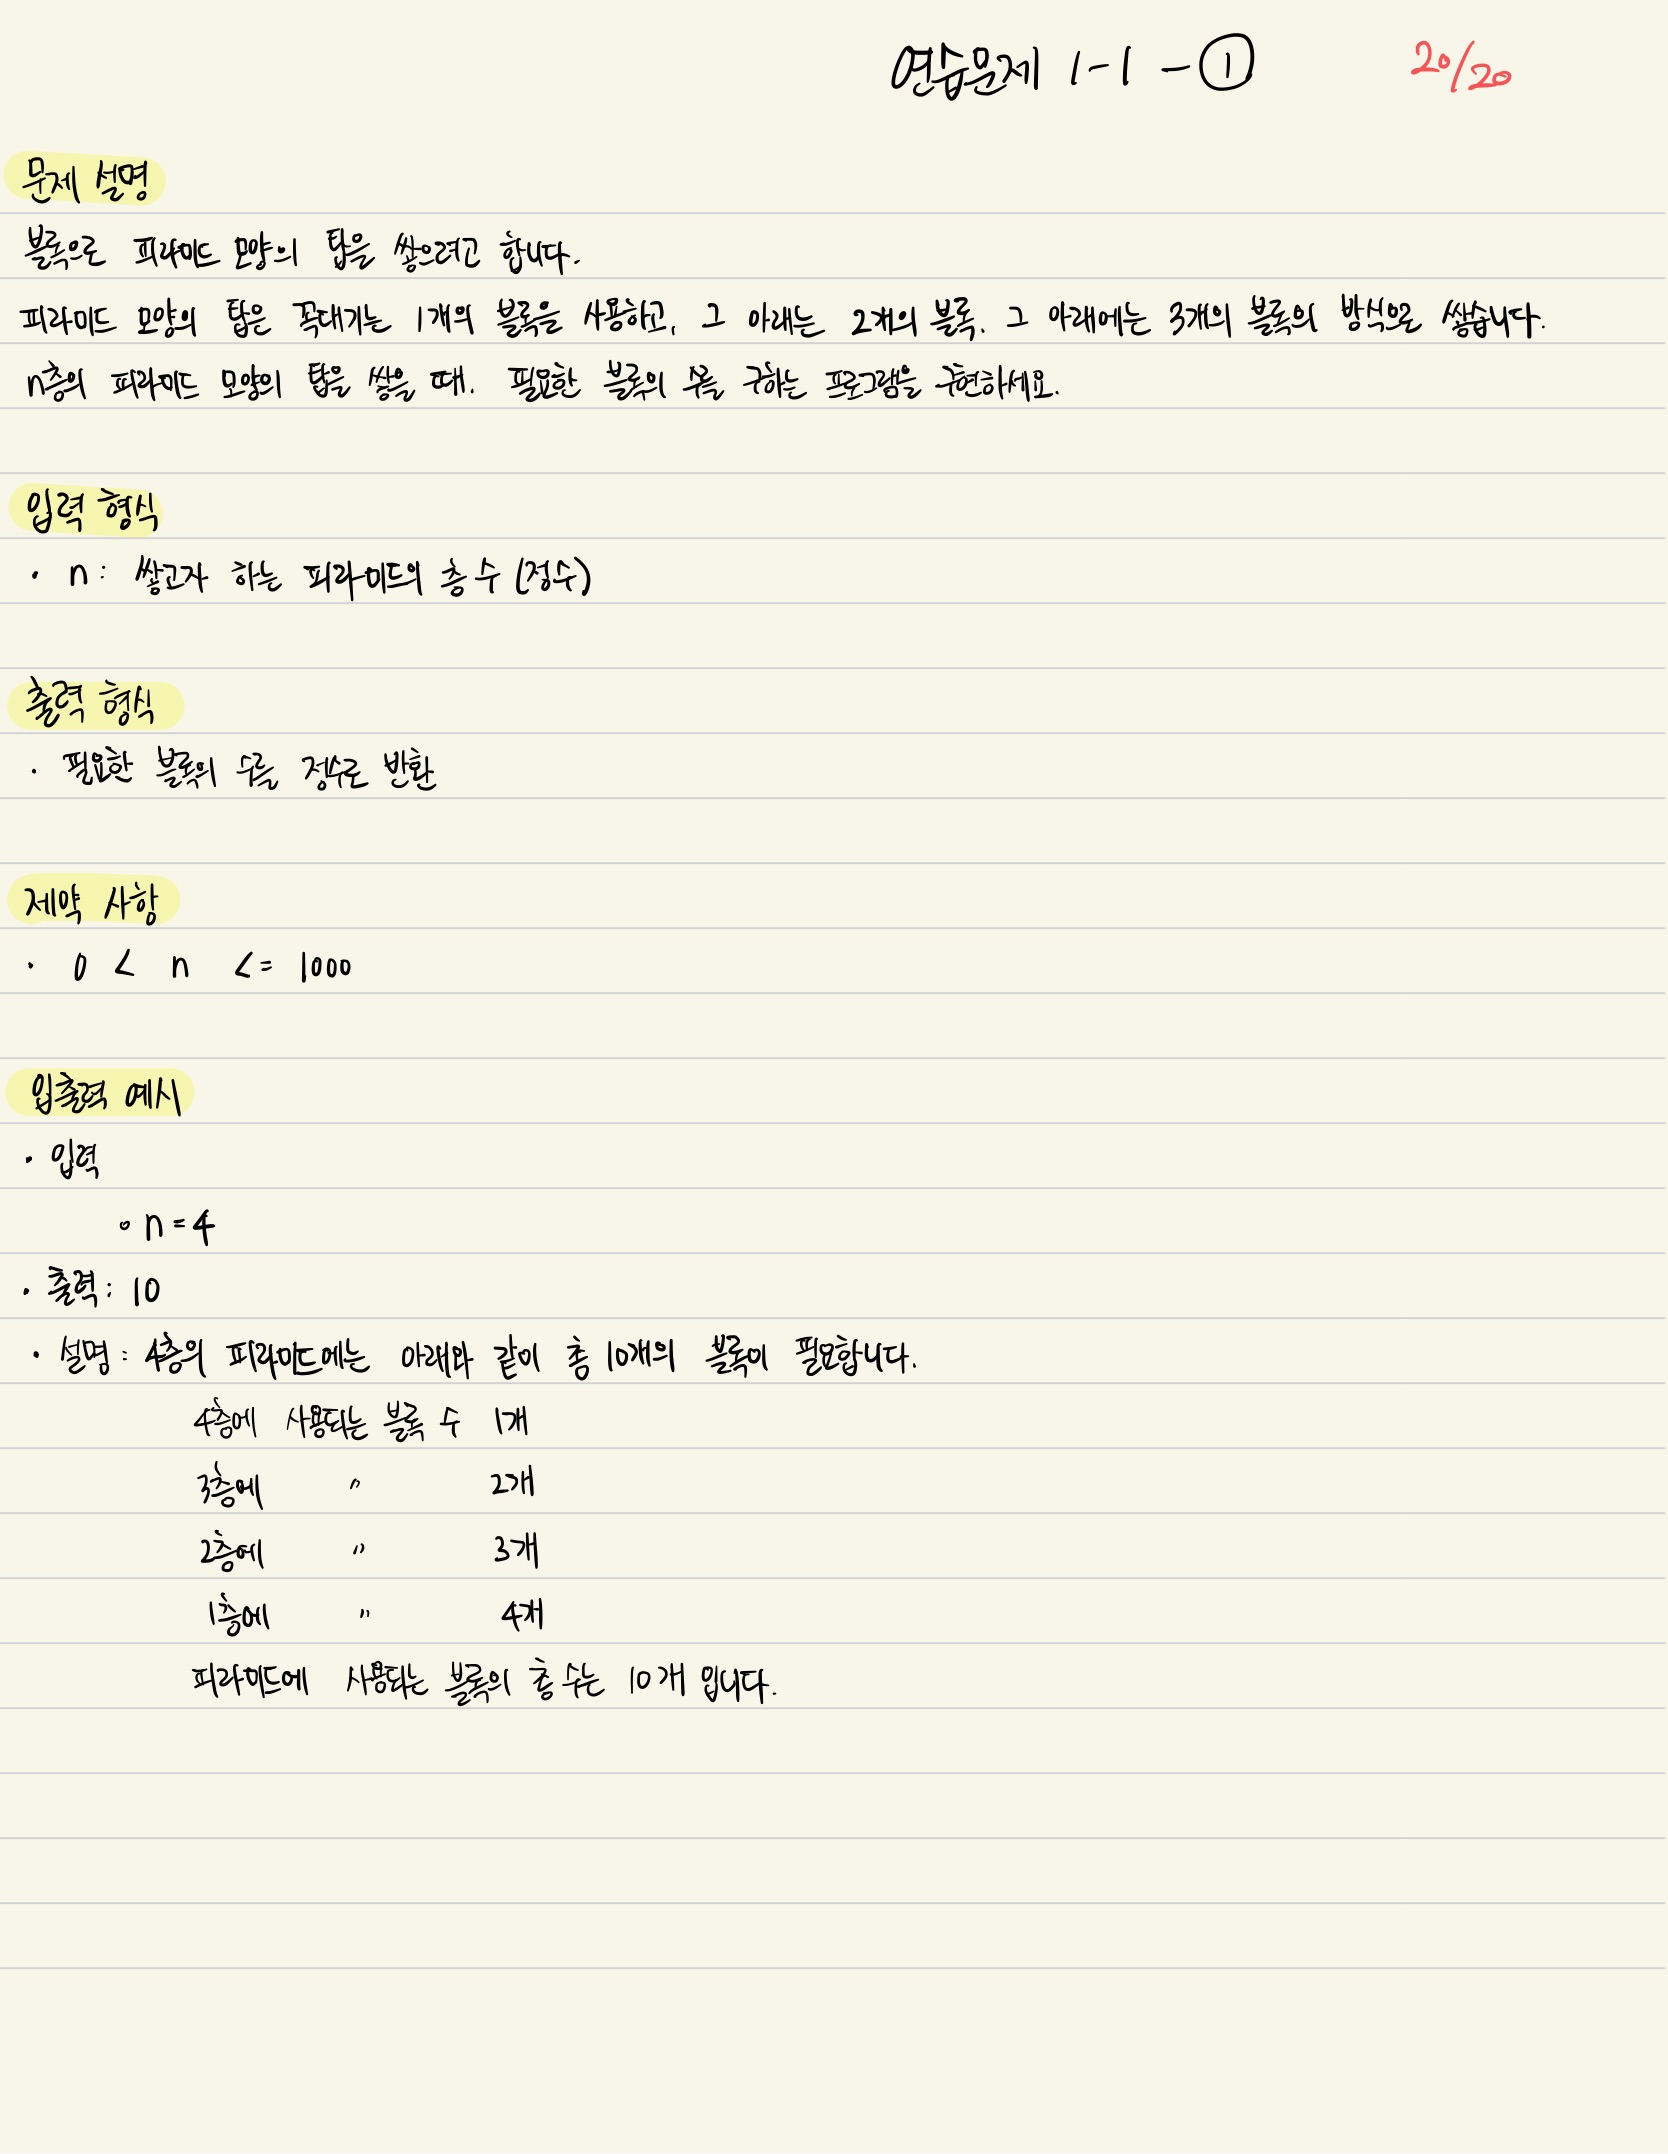 연습문제 1-1 - ① 20/20
문제 설명
블록으로 피라미드 모양의 탑을 쌓으려고 합니다.
피라미드 모양의 탑은 꼭대기는 1개의 블록을 사용하고, 그 아래는 2개의 블록. 그 아래에는 3개의 블록의 방식으로 쌓습니다.
n층의 피라미드 모양의 탑을 쌓을 때. 필요한 블록의 수를 구하는 프로그램을 구현하세요.
입력 형식
· n: 쌓고자 하는 피라미드의 층 수 (정수)
출력 형식
· 필요한 블록의 수를 정수로 반환
제약 사항
· 0 < n <= 1000
입출력 예시
· 입력
◦ n = 4
· 출력: 10
· 설명: 4층의 피라미드에는 아래와 같이 총 10개의 블록이 필요합니다.
4층에 사용되는 블록 수 1개
3층에 〃 2개
2층에 〃 3개
1층에 〃 4개
피라미드에 사용되는 블록의 총 수는 10개 입니다.